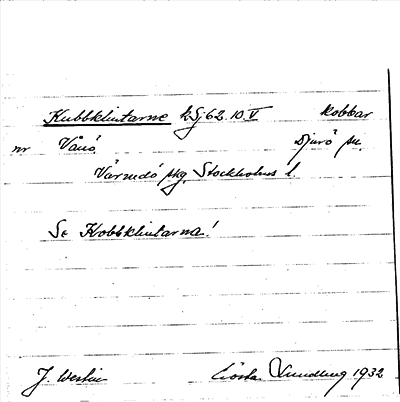 Kubbklintarne kSj 62.10.V kobbar
nr Vånö Djurö sn.
Värmdö skg. Stockholms l.
Se Kobbklintarna!
J. Westin Gösta Lundberg 1932